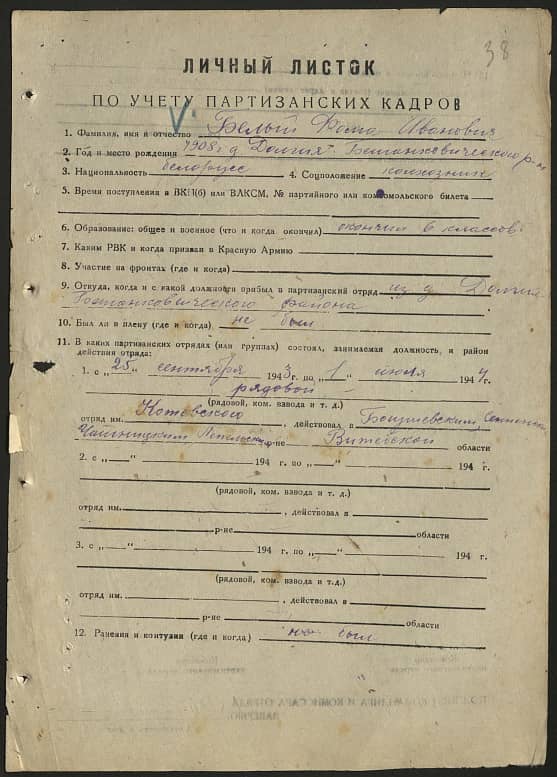 38
ЛИЧНЫЙ ЛИСТОК
ПО УЧЕТУ ПАРТИЗАНСКИХ КАДРОВ
1. Фамилия, имя и отчество Белый Фома Иванович
2. Год и место рождения 1908 г. д Долгия Бешанковического р-н
3. Национальность белорусс 4. Соцположение колхозник
5. Время поступления в ВКП(б) или ВЛКСМ, № партийного или комсомольского билета
6. Образование: общее и военное (что и когда окончил) окончил 6 классов
7. Каким РВК и когда призван в Красную Армию
8. Участие на фронтах (где и когда)
9. Откуда, когда и с какой должности прибыл в партизанский отряд из д Долгия
Бешанковического района
10. Был ли в плену (где и когда) не был
11. В каких партизанских отрядах (или группах) состоял, занимаемая должность, и район
действия отряда:
1. с „25" сентября 1943 г. по „1" июля 1944 г.
рядовой
(рядовой, ком. взвода и т. д.)
отряд им. Котовского, действовал в
Чашницким р-не Витебской области
2. с „ " 194 г. по „ " 194 г.
(рядовой, ком. взвода и т. д.)
отряд им. , действовал в
р-не области
3. с „ " 194 г. по „ " 194 г.
(рядовой, ком. взвода и т.д.)
отряд им. , действовал в
р-не области
12. Ранения и контузии (где и когда) не был